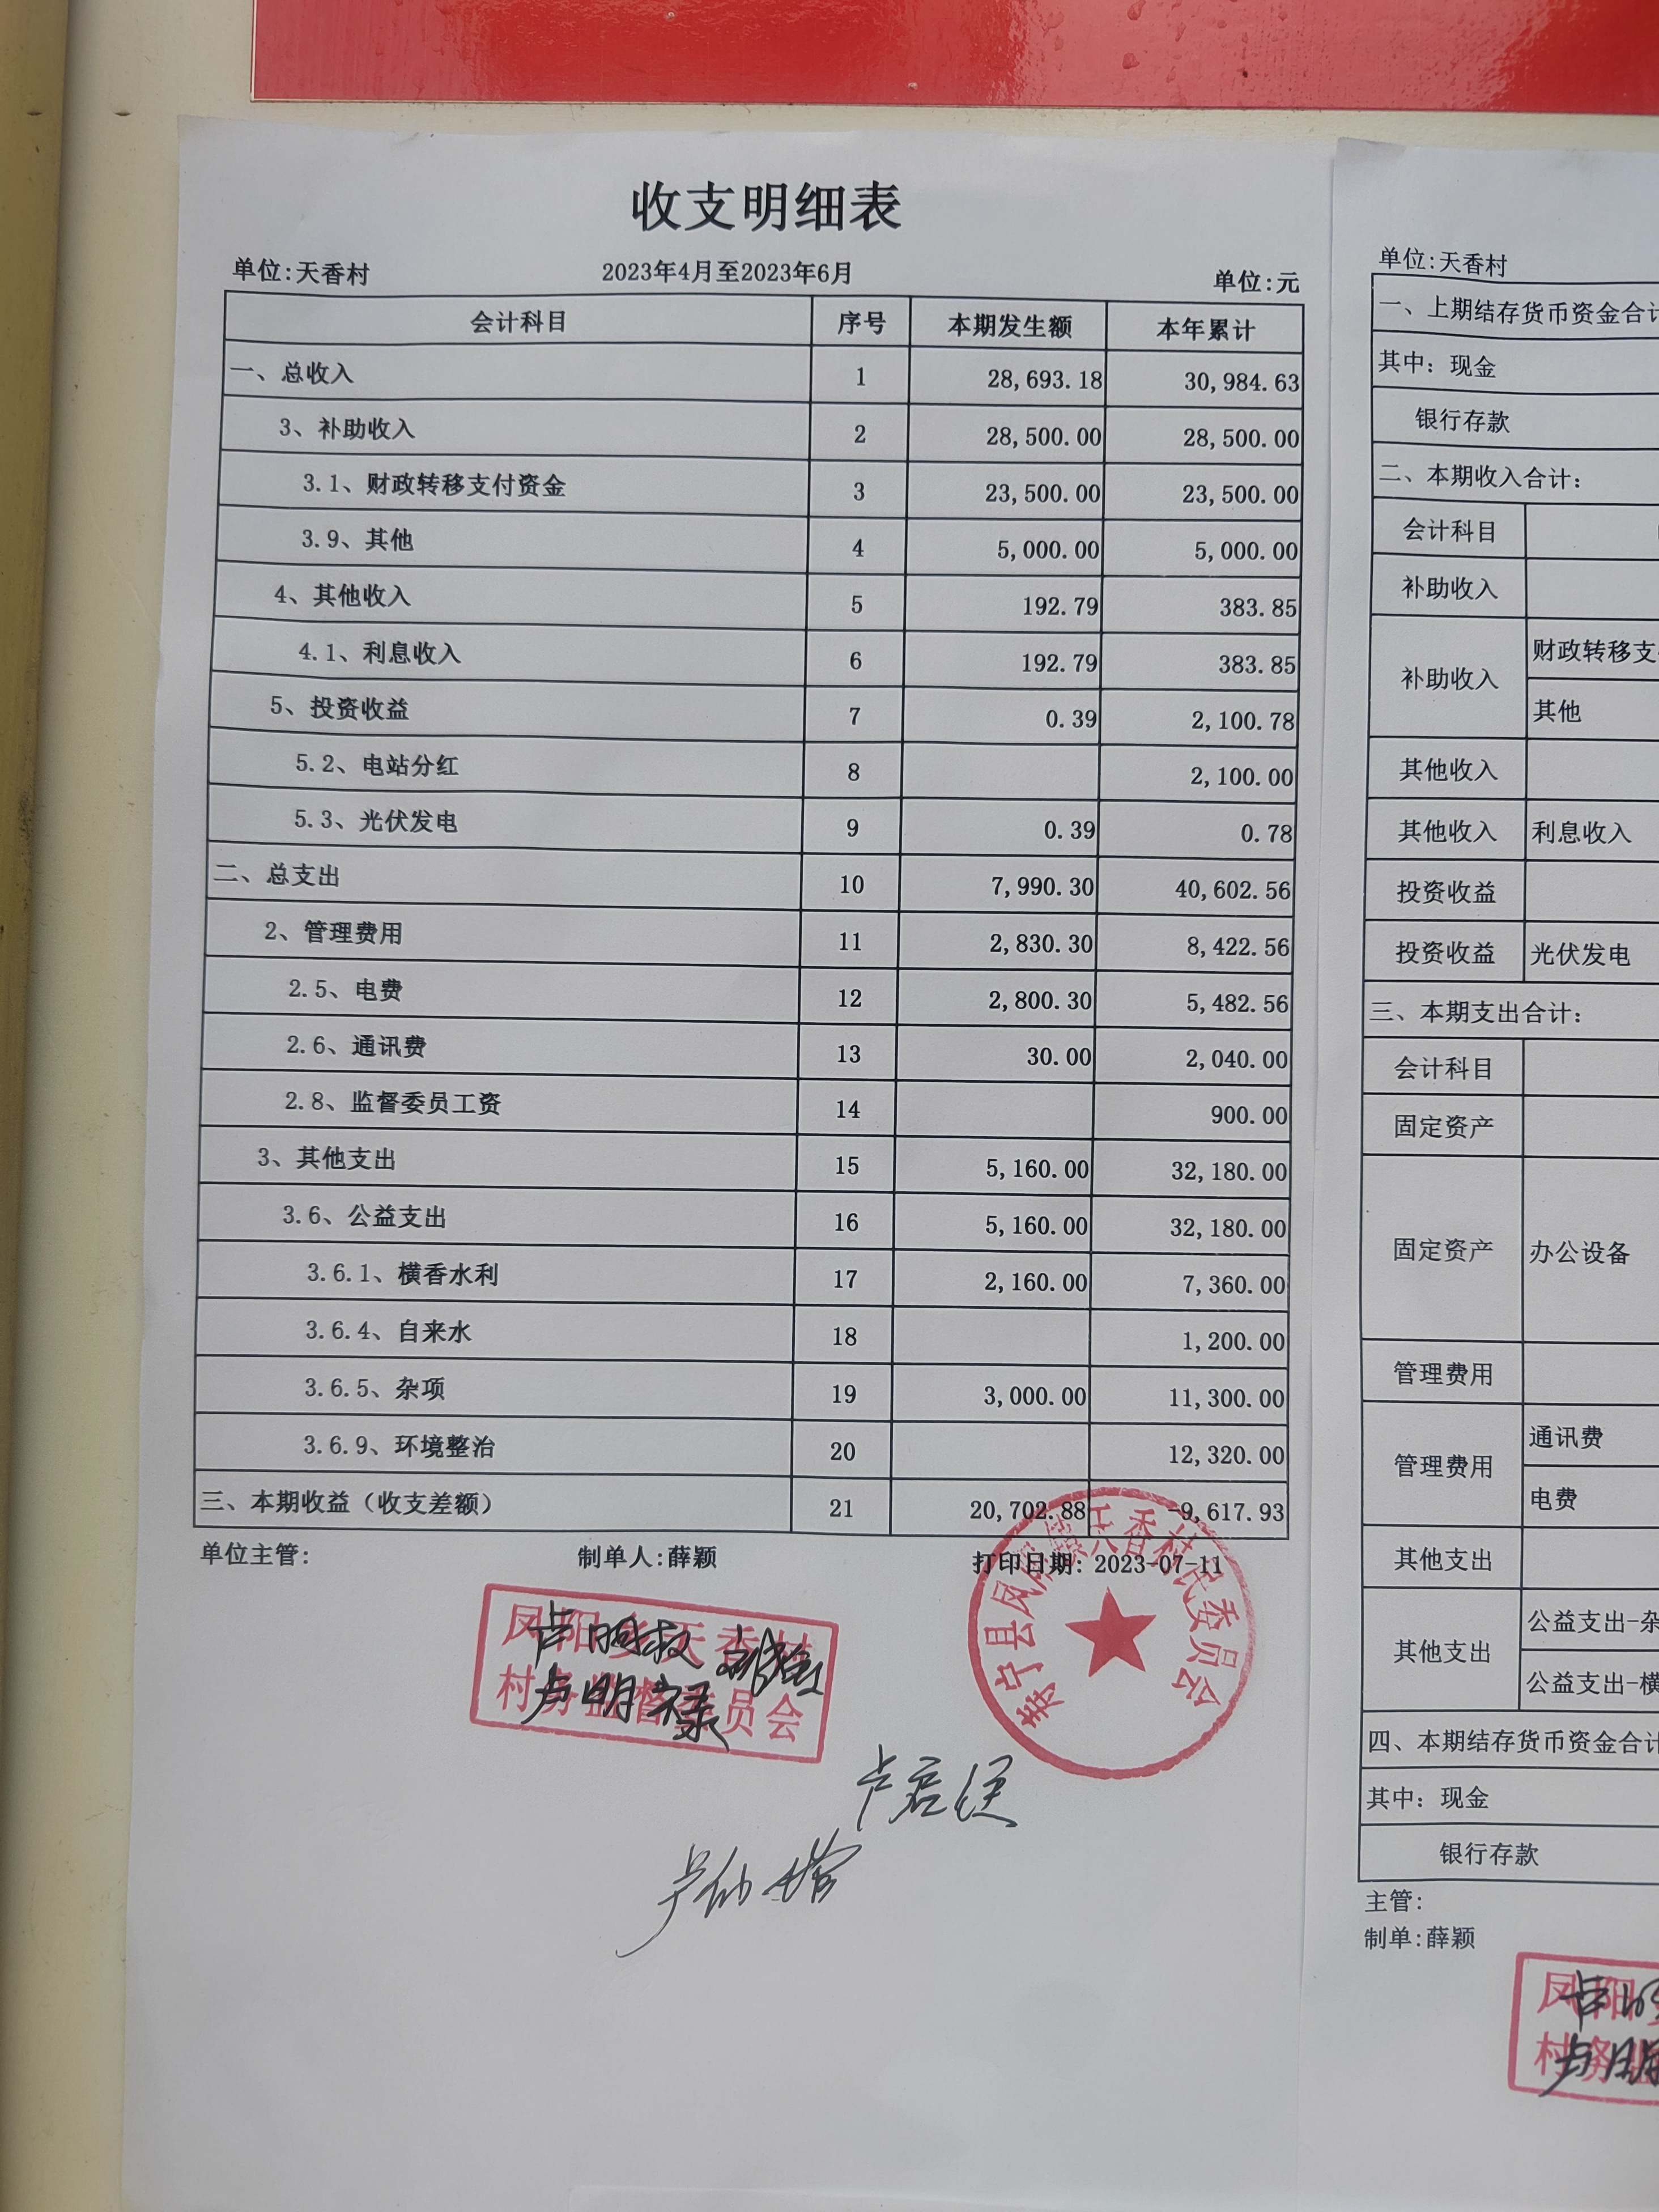 收支明细表
单位:天香村 2023年4月至2023年6月 单位:元
会计科目 序号 本期发生额 本年累计
一、总收入 1 28,693.18 30,984.63
3、补助收入 2 28,500.00 28,500.00
3.1、财政转移支付资金 3 23,500.00 23,500.00
3.9、其他 4 5,000.00 5,000.00
4、其他收入 5 192.79 383.85
4.1、利息收入 6 192.79 383.85
5、投资收益 7 0.39 2,100.78
5.2、电站分红 8 2,100.00
5.3、光伏发电 9 0.39 0.78
二、总支出 10 7,990.30 40,602.56
2、管理费用 11 2,830.30 8,422.56
2.5、电费 12 2,800.30 5,482.56
2.6、通讯费 13 30.00 2,040.00
2.8、监督委员工资 14 900.00
3、其他支出 15 5,160.00 32,180.00
3.6、公益支出 16 5,160.00 32,180.00
3.6.1、横香水利 17 2,160.00 7,360.00
3.6.4、自来水 18 1,200.00
3.6.5、杂项 19 3,000.00 11,300.00
3.6.9、环境整治 20 12,320.00
三、本期收益（收支差额） 21 20,702.88 -9,617.93
单位主管: 制单人:薛颖 打印日期: 2023-07-11
凤阳乡天香村
村务监督委员会
卢明禄
寿宁县凤阳镇天香村民委员会
单位:天香村
一、上期结存货币资金合计
其中: 现金
银行存款
二、本期收入合计:
会计科目
补助收入
补助收入 财政转移支
其他
其他收入
其他收入 利息收入
投资收益
投资收益 光伏发电
三、本期支出合计:
会计科目
固定资产
固定资产 办公设备
管理费用
管理费用 通讯费
电费
其他支出
其他支出 公益支出-杂
公益支出-横
四、本期结存货币资金合计
其中: 现金
银行存款
主管:
制单:薛颖
凤阳
村务